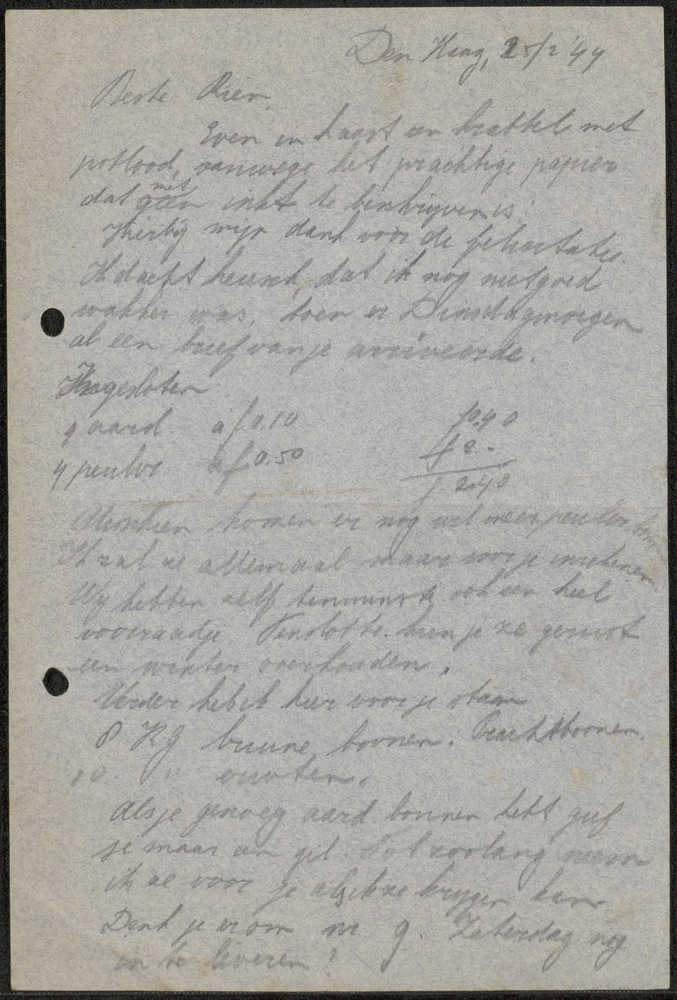 Den Haag, 25/2 '44
Beste Rien,
Even in haast een krabbel met
potlood, vanwege het prachtige papier
dat geen met inkt te beschrijven is!
Hierbij mijn dank voor de felicitatie.
Ik dacht heusch, dat ik nog niet goed
wakker was, toen er Dinsdagmorgen
al een brief van je arriveerde.
Ingesloten
4 aard. a f 0.10 f 0.40
4 peulvr. a f 0.50 f 2.-
f 2.40
Misschien komen er nog wel meer peulvr. bonnen
Ik zal ze allemaal maar voor je
Wij hebben zelf tenminste ook een heel
voorraadje. Tenslotte kan je ze gerust
een winter overhouden.
Verder heb ik hier voor je staan
8 KG bruine boonen. Prachtboonen.
10 " erwten.
Als je genoeg aard. bonnen hebt geef
je maar een gil. Tot zoolang neem
ik ze voor je als ik ze krijgen kan
Denk je erom nr 9 Zaterdag nog
in te leveren!